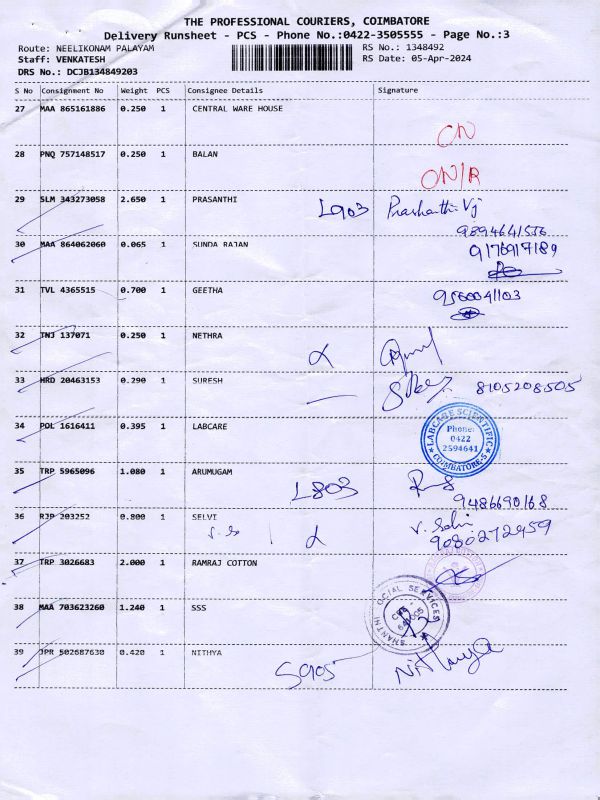 THE PROFESSIONAL COURIERS, COIMBATORE
Delivery Runsheet - PCS - Phone No.:0422-3505555 - Page No.:3
Route: NEELIKONAM PALAYAM RS No.: 1348492
Staff: VENKATESH RS Date: 05-Apr-2024
DRS No.: DCJB134849203
S No Consignment No Weight PCS Consignee Details Signature
27 MAA 865161886 0.250 1 CENTRAL WARE HOUSE
ON
28 PNQ 757148517 0.250 1 BALAN
ON/R
29 SLM 343273058 2.650 1 PRASANTHI L903 Prashanthi.Vj
9894641556
30 MAA 864062060 0.065 1 SUNDA RAJAN 9176917189
31 TVL 4365515 0.700 1 GEETHA 9566041103
32 TNJ 137071 0.250 1 NETHRA
33 HRD 20463153 0.290 1 SURESH 8105208505
34 POL 1616411 0.395 1 LABCARE
LABCARE SCIENTIFIC
Phone:
0422
2594641
COIMBATORE-5
35 TRP 5965096 1.080 1 ARUMUGAM
L803
9486690168
36 RJP 203252 0.800 1 SELVI V. Selvi
9080272959
37 TRP 3026683 2.000 1 RAMRAJ COTTON
38 MAA 703623260 1.240 1 SSS
SHANTHI SOCIAL SERVICES
39 JPR 502687630 0.420 1 NITHYA
S905 Nithya